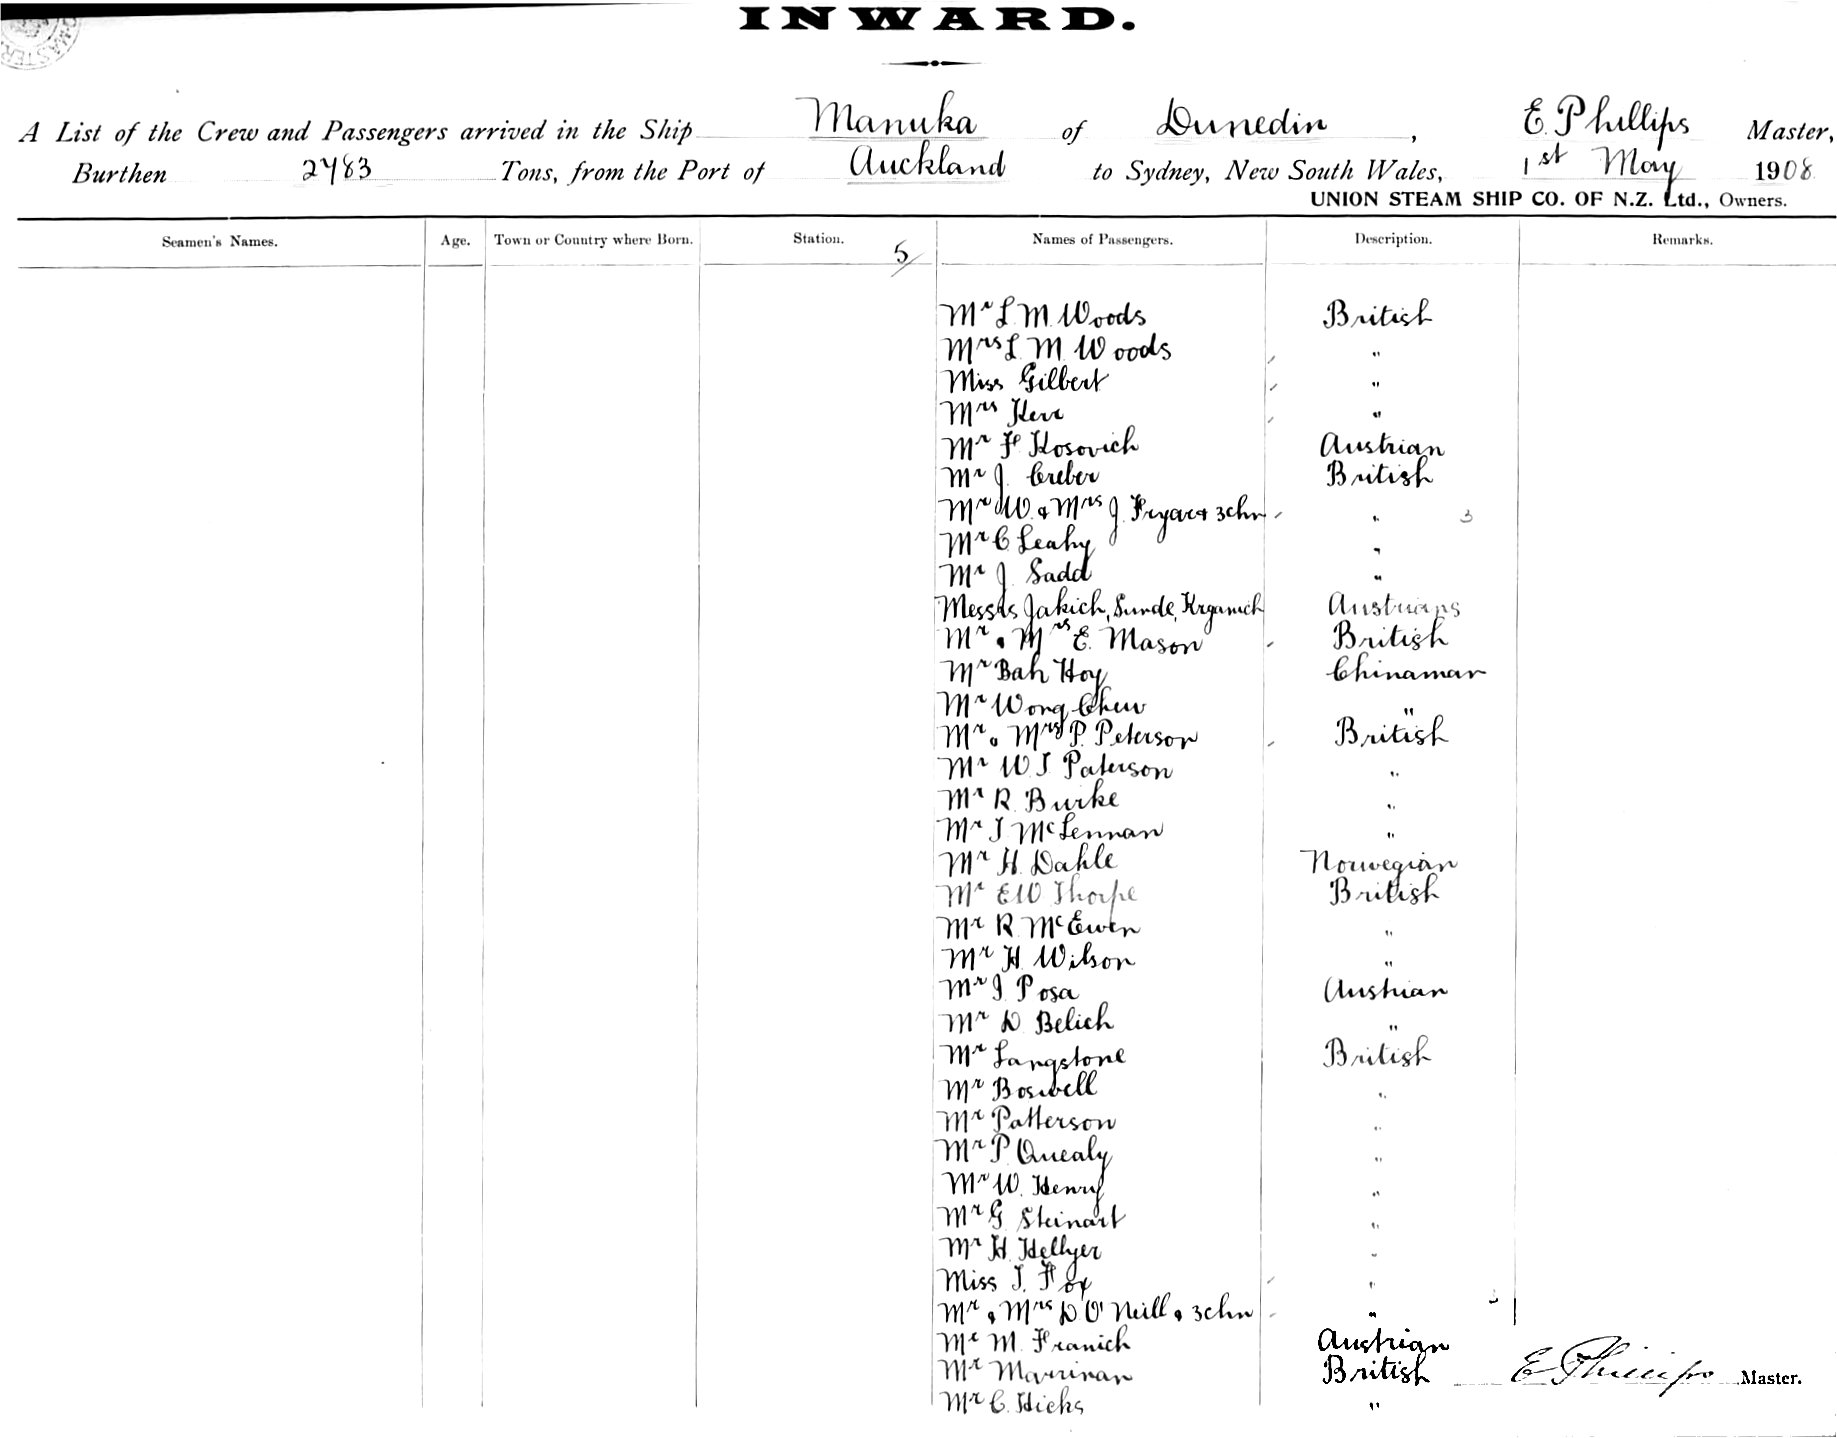 INWARD.
A List of the Crew and Passengers arrived in the Ship Manuka of Dunedin, E. Phillips Master,
Burthen 2483 Tons, from the Port of Auckland to Sydney, New South Wales, 1st May 1908
UNION STEAM SHIP CO. OF N.Z. Ltd., Owners.
Seamen's Names. Age. Town or Country where Born. Station. 5 Names of Passengers. Description. Remarks.
Mr L. M. Woods British
Mrs L. M. Woods "
Miss Gilbert "
Mrs Kerr "
Mr F Kosovich Austrian
Mr J. Creber British
Mr W. & Mrs J. Fryar & 3 chn " 3
Mr C Leahy "
Mr J. Sadd "
Messrs Jakich, Sunde, Krganich Austrians
Mr & Mrs E. Mason British
Mr Bah Hoy Chinaman
Mr Wong Chew "
Mr & Mrs P. Peterson British
Mr W. J. Paterson "
Mr R. Burke "
Mr J McLennan "
Mr H. Dahle Norwegian
Mr E W Thorpe British
Mr R. McEwen "
Mr H. Wilson "
Mr J. Posa Austrian
Mr D. Belich "
Mr Langstone British
Mr Boswell "
Mr Patterson "
Mr P. Quealy "
Mr W. Henry "
Mr G. Steinart "
Mr H. Hellyer "
Miss J. Fox "
Mr & Mrs D O'Neill & 3 chn " 3
Mr M. Franich Austrian
Mr Marrinan British E Phillips Master.
Mr C. Hicks "